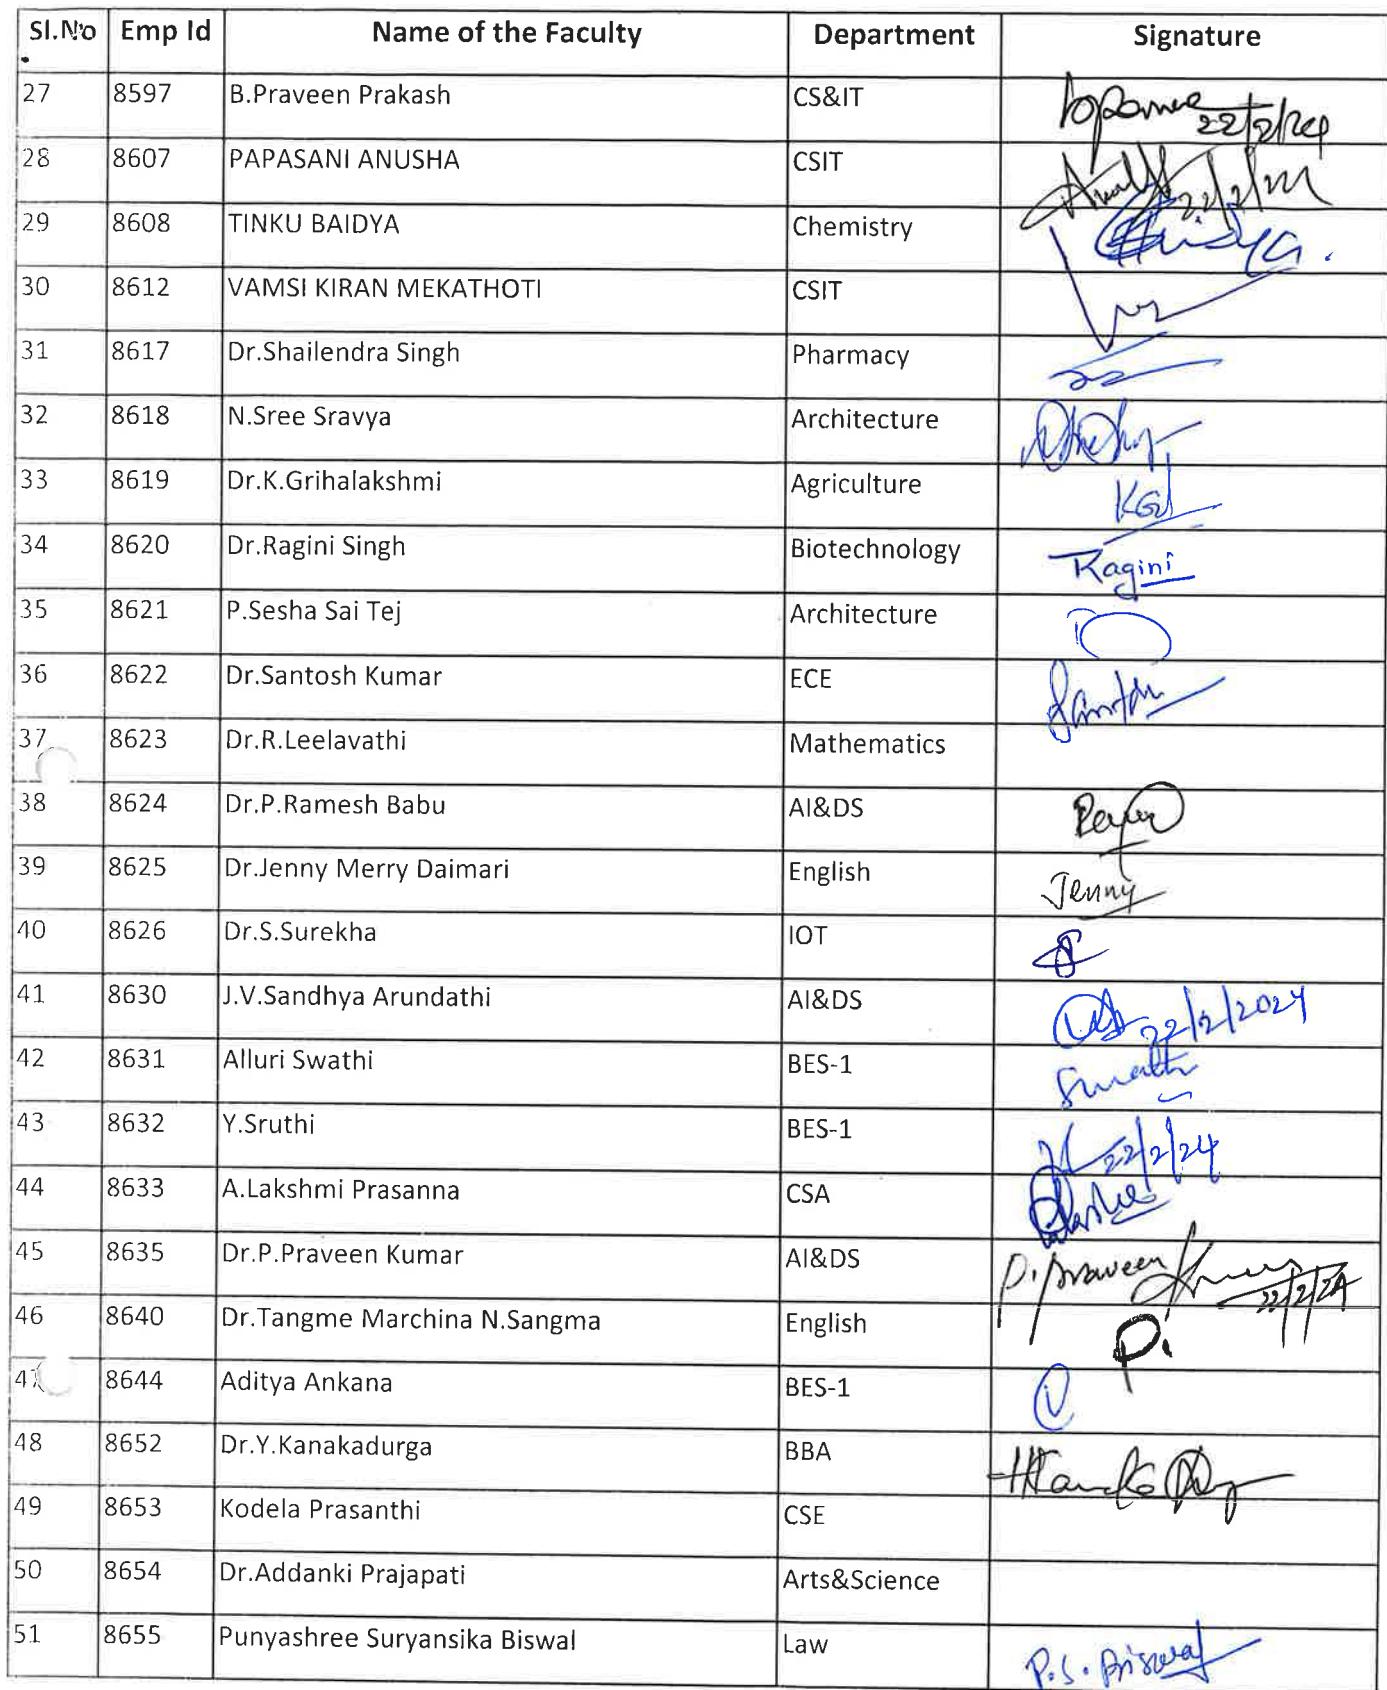 Sl.No. Emp Id Name of the Faculty Department Signature
27 8597 B.Praveen Prakash CS&IT 22/2/24
28 8607 PAPASANI ANUSHA CSIT 22/2/24
29 8608 TINKU BAIDYA Chemistry
30 8612 VAMSI KIRAN MEKATHOTI CSIT
31 8617 Dr.Shailendra Singh Pharmacy
32 8618 N.Sree Sravya Architecture
33 8619 Dr.K.Grihalakshmi Agriculture
34 8620 Dr.Ragini Singh Biotechnology Ragini
35 8621 P.Sesha Sai Tej Architecture
36 8622 Dr.Santosh Kumar ECE
37 8623 Dr.R.Leelavathi Mathematics
38 8624 Dr.P.Ramesh Babu AI&DS
39 8625 Dr.Jenny Merry Daimari English Jenny
40 8626 Dr.S.Surekha IOT
41 8630 J.V.Sandhya Arundathi AI&DS 22/2/2024
42 8631 Alluri Swathi BES-1 Swathi
43 8632 Y.Sruthi BES-1 22/2/24
44 8633 A.Lakshmi Prasanna CSA
45 8635 Dr.P.Praveen Kumar AI&DS P. Praveen Kumar 22/2/24
46 8640 Dr.Tangme Marchina N.Sangma English
47 8644 Aditya Ankana BES-1
48 8652 Dr.Y.Kanakadurga BBA
49 8653 Kodela Prasanthi CSE
50 8654 Dr.Addanki Prajapati Arts&Science
51 8655 Punyashree Suryansika Biswal Law P.S. Biswal